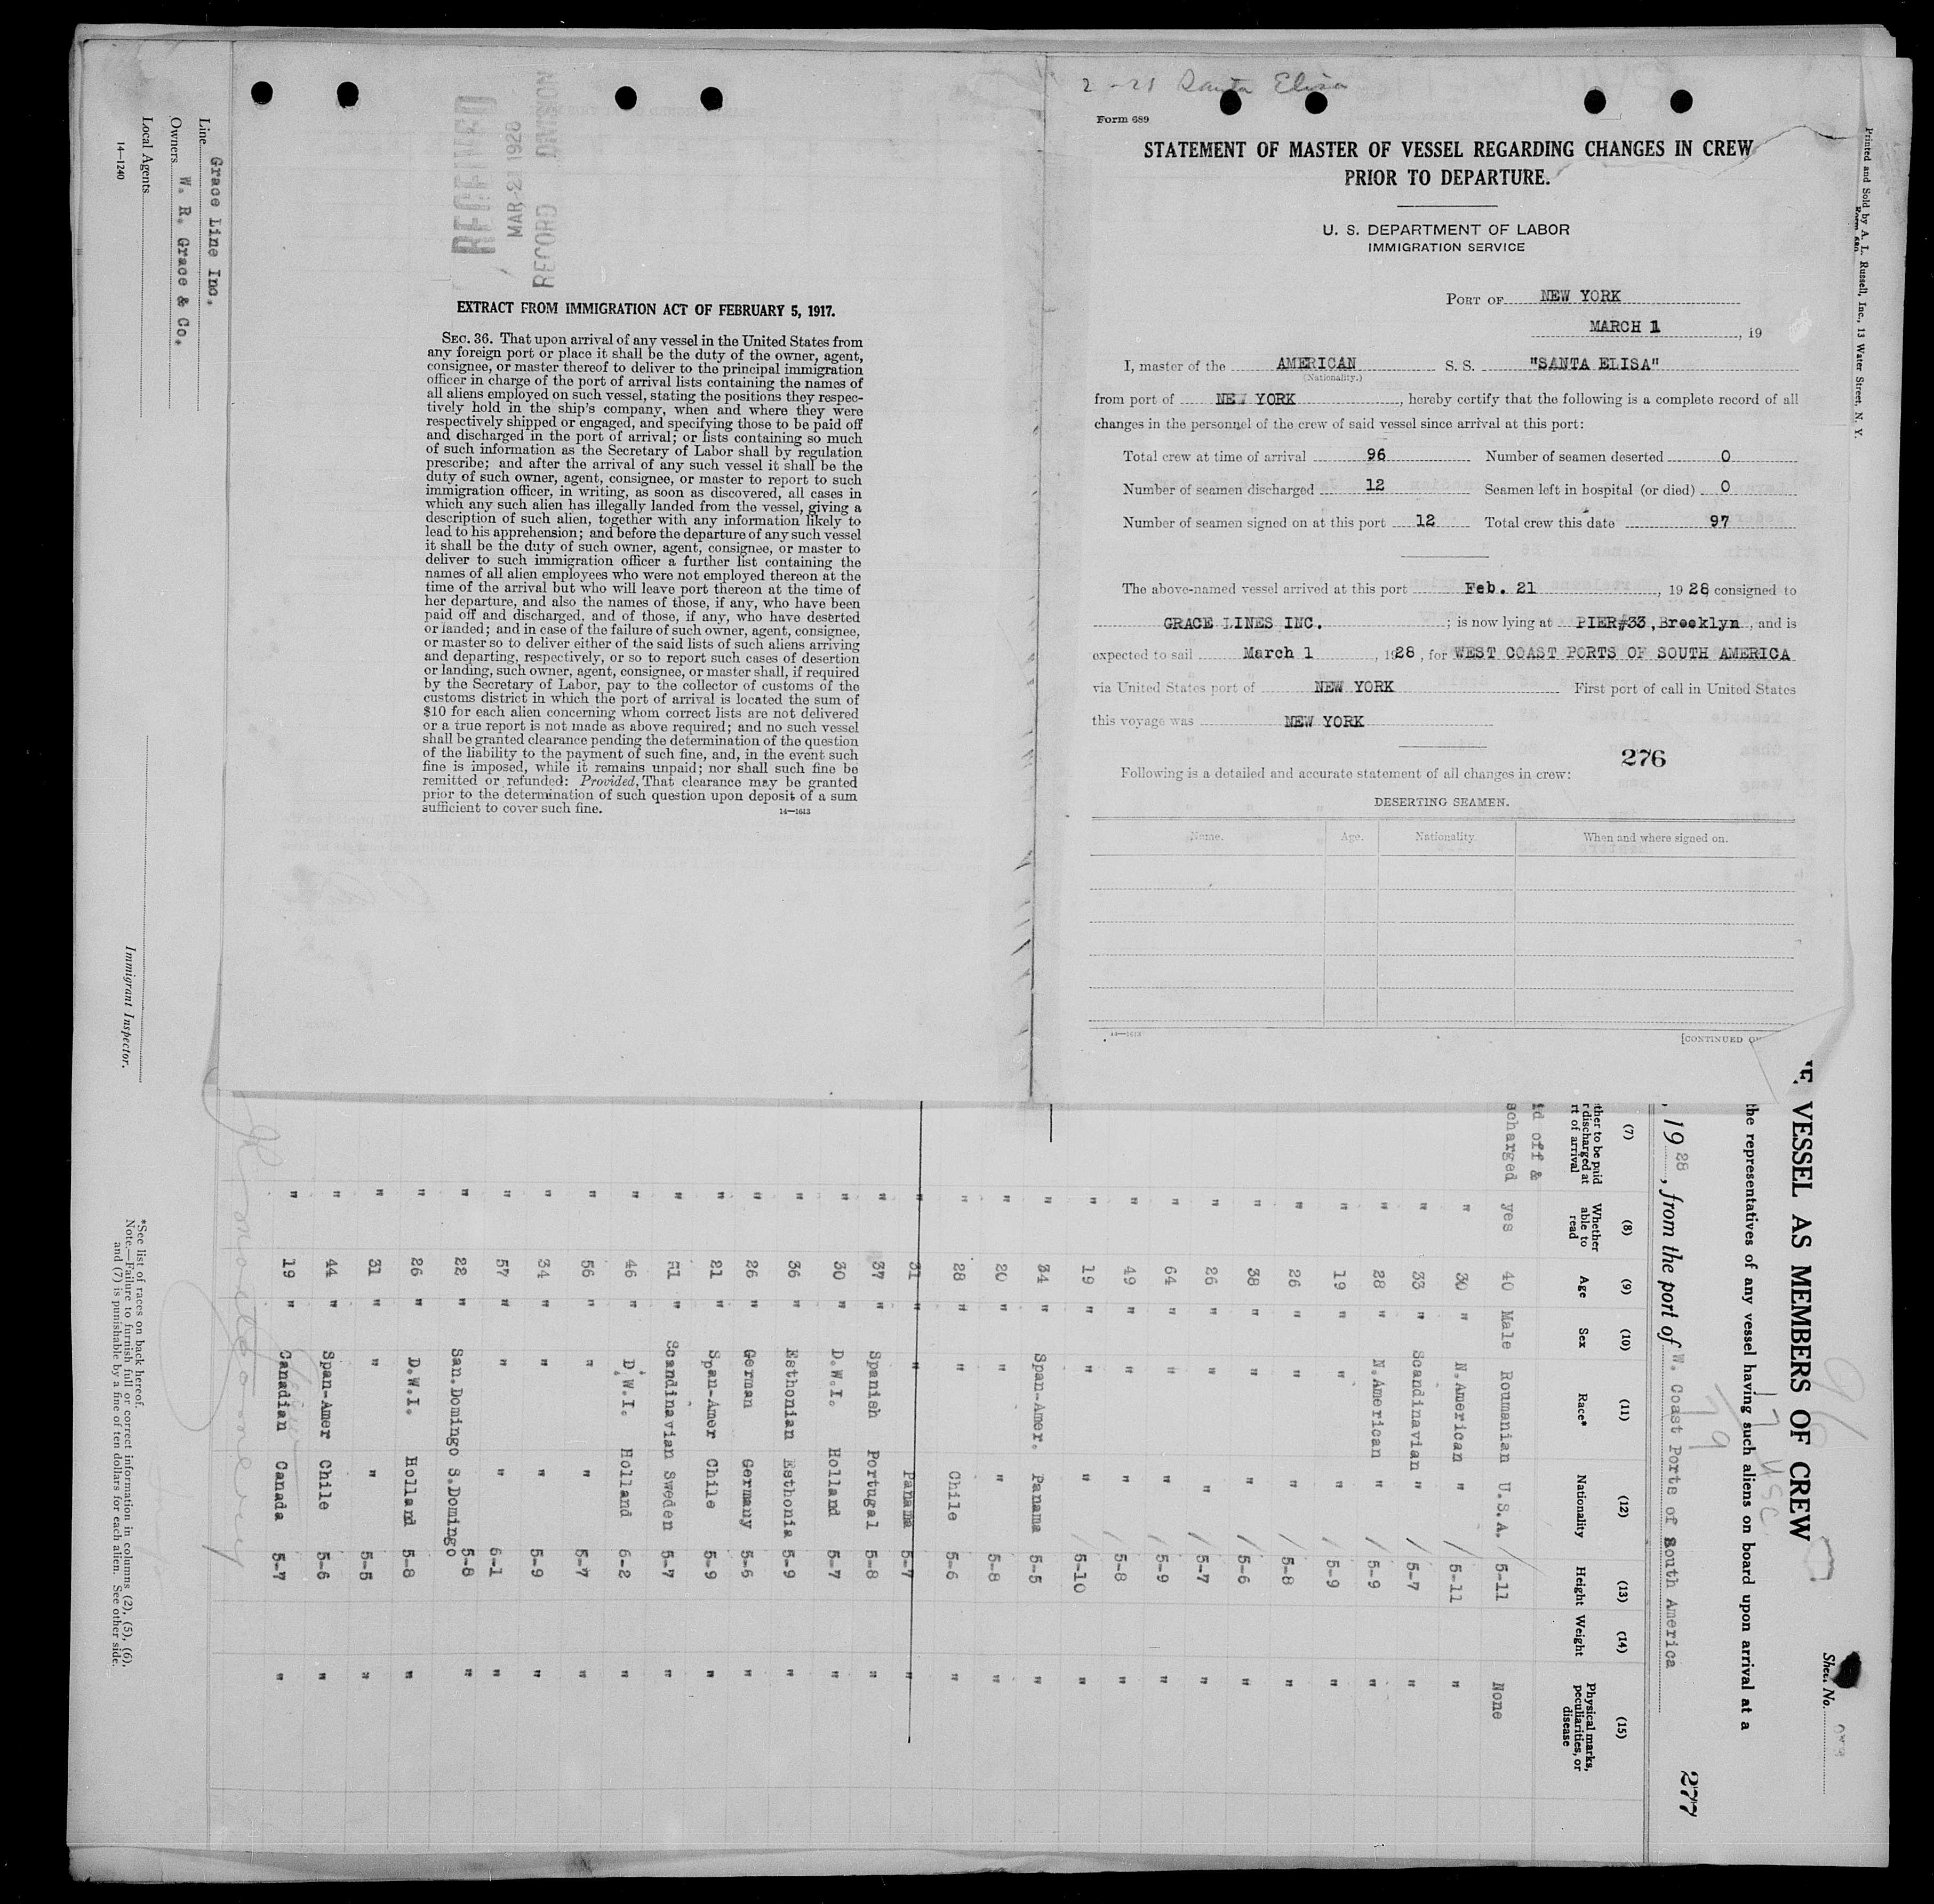 2-21 Santa Elisa
Form 689
STATEMENT OF MASTER OF VESSEL REGARDING CHANGES IN CREW
PRIOR TO DEPARTURE.
U. S. DEPARTMENT OF LABOR
IMMIGRATION SERVICE
PORT OF NEW YORK
MARCH 1, 19
I, master of the AMERICAN S. S. "SANTA ELISA"
(Nationality.)
from port of NEW YORK, hereby certify that the following is a complete record of all
changes in the personnel of the crew of said vessel since arrival at this port:
Total crew at time of arrival 96 Number of seamen deserted 0
Number of seamen discharged 12 Seamen left in hospital (or died) 0
Number of seamen signed on at this port 12 Total crew this date 97
The above-named vessel arrived at this port Feb. 21, 1928, consigned to
GRACE LINES INC.; is now lying at PIER#33, Brooklyn, and is
expected to sail March 1, 1928, for WEST COAST PORTS OF SOUTH AMERICA
via United States port of NEW YORK First port of call in United States
this voyage was NEW YORK
276
Following is a detailed and accurate statement of all changes in crew:
DESERTING SEAMEN.
Name. Age. Nationality. When and where signed on.
14—1613
[CONTINUED
Printed and Sold by A. L. Russell, Inc., 13 Water Street, N. Y.
Form 689
RECEIVED
MAR 21 1928
RECORD DIVISION
EXTRACT FROM IMMIGRATION ACT OF FEBRUARY 5, 1917.
SEC. 36. That upon arrival of any vessel in the United States from
any foreign port or place it shall be the duty of the owner, agent,
consignee, or master thereof to deliver to the principal immigration
officer in charge of the port of arrival lists containing the names of
all aliens employed on such vessel, stating the positions they respec-
tively hold in the ship's company, when and where they were
respectively shipped or engaged, and specifying those to be paid off
and discharged in the port of arrival; or lists containing so much
of such information as the Secretary of Labor shall by regulation
prescribe; and after the arrival of any such vessel it shall be the
duty of such owner, agent, consignee, or master to report to such
immigration officer, in writing, as soon as discovered, all cases in
which any such alien has illegally landed from the vessel, giving a
description of such alien, together with any information likely to
lead to his apprehension; and before the departure of any such vessel
it shall be the duty of such owner, agent, consignee, or master to
deliver to such immigration officer a further list containing the
names of all alien employees who were not employed thereon at the
time of the arrival but who will leave port thereon at the time of
her departure, and also the names of those, if any, who have been
paid off and discharged, and of those, if any, who have deserted
or landed; and in case of the failure of such owner, agent, consignee,
or master so to deliver either of the said lists of such aliens arriving
and departing, respectively, or so to report such cases of desertion
or landing, such owner, agent, consignee, or master shall, if required
by the Secretary of Labor, pay to the collector of customs of the
customs district in which the port of arrival is located the sum of
$10 for each alien concerning whom correct lists are not delivered
or a true report is not made as above required; and no such vessel
shall be granted clearance pending the determination of the question
of the liability to the payment of such fine, and, in the event such
fine is imposed, while it remains unpaid; nor shall such fine be
remitted or refunded: Provided, That clearance may be granted
prior to the determination of such question upon deposit of a sum
sufficient to cover such fine.
14—1613
Sheet No.
VESSEL AS MEMBERS OF CREW
the representatives of any vessel having such aliens on board upon arrival at a
, 1928, from the port of W. Coast Ports of South America
277
(7) (8) (9) (10) (11) (12) (13) (14) (15)
ther to be paid
r discharged at
rt of arrival
Whether able to read
Age Sex Race* Nationality Height Weight
Physical marks, peculiarities, or disease
id off &
scharged yes 40 Male Roumanian U.S.A. 5-11 None
" 30 " N.American " 5-11 "
" 33 " Scandinavian " 5-7 "
" 28 " N.American " 5-9 "
" 19 " " " 5-9 "
" 26 " " " 5-8 "
" 38 " " " 5-6 "
" 26 " " " 5-7 "
" 64 " " " 5-9 "
" 49 " " " 5-8 "
" 19 " " " 5-10 "
" 34 " Span-Amer. Panama 5-5 "
" 20 " " " 5-8 "
" 28 " " Chile 5-6 "
" 31 " " Panama 5-7 "
" 37 " Spanish Portugal 5-8 "
" 30 " D.W.I. Holland 5-7 "
" 36 " Esthonian Esthonia 5-9 "
" 26 " German Germany 5-6 "
" 21 " Span-Amer Chile 5-9 "
" 51 " Scandinavian Sweden 5-7 "
" 46 " D.W.I. Holland 6-2 "
" 56 " " " 5-7 "
" 34 " " " 5-9 "
" 57 " " " 6-1 "
" 22 " San.Domingo S.Domingo 5-8 "
" 26 " D.W.I. Holland 5-8 "
" 31 " " " 5-5 "
" 44 " Span-Amer Chile 5-6 "
" 19 " Canadian Canada 5-7 "
Line Grace Line Inc.
Owners W. R. Grace & Co.
Local Agents
14—1240
Immigrant Inspector.
*See list of races on back hereof.
Note.—Failure to furnish full or correct information in columns (2), (5), (6),
and (7) is punishable by a fine of ten dollars for each alien. See other side.